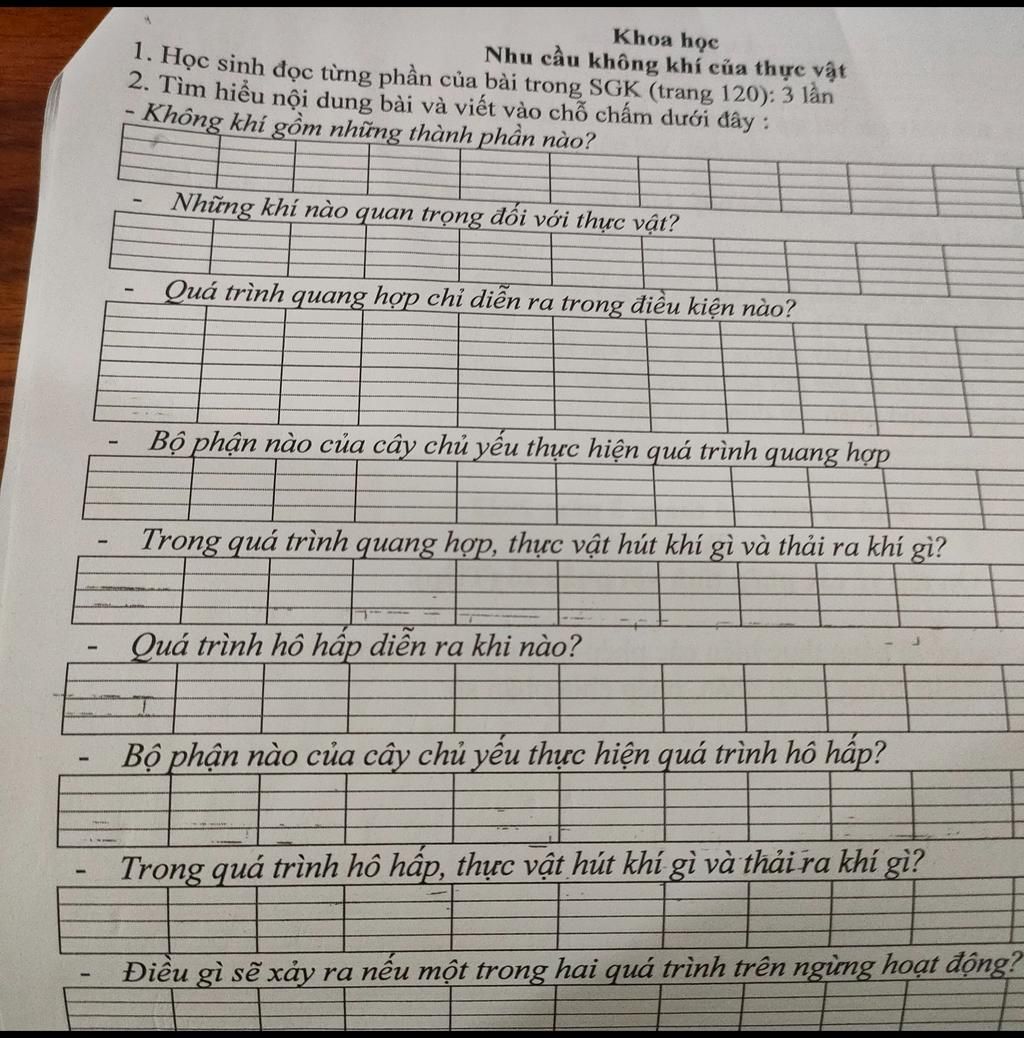 Khoa học
Nhu cầu không khí của thực vật
1. Học sinh đọc từng phần của bài trong SGK (trang 120): 3 lần
2. Tìm hiểu nội dung bài và viết vào chỗ chấm dưới đây :
- Không khí gồm những thành phần nào?
- Những khí nào quan trọng đối với thực vật?
- Quá trình quang hợp chỉ diễn ra trong điều kiện nào?
- Bộ phận nào của cây chủ yếu thực hiện quá trình quang hợp
- Trong quá trình quang hợp, thực vật hút khí gì và thải ra khí gì?
- Quá trình hô hấp diễn ra khi nào?
- Bộ phận nào của cây chủ yếu thực hiện quá trình hô hấp?
- Trong quá trình hô hấp, thực vật hút khí gì và thải ra khí gì?
- Điều gì sẽ xảy ra nếu một trong hai quá trình trên ngừng hoạt động?